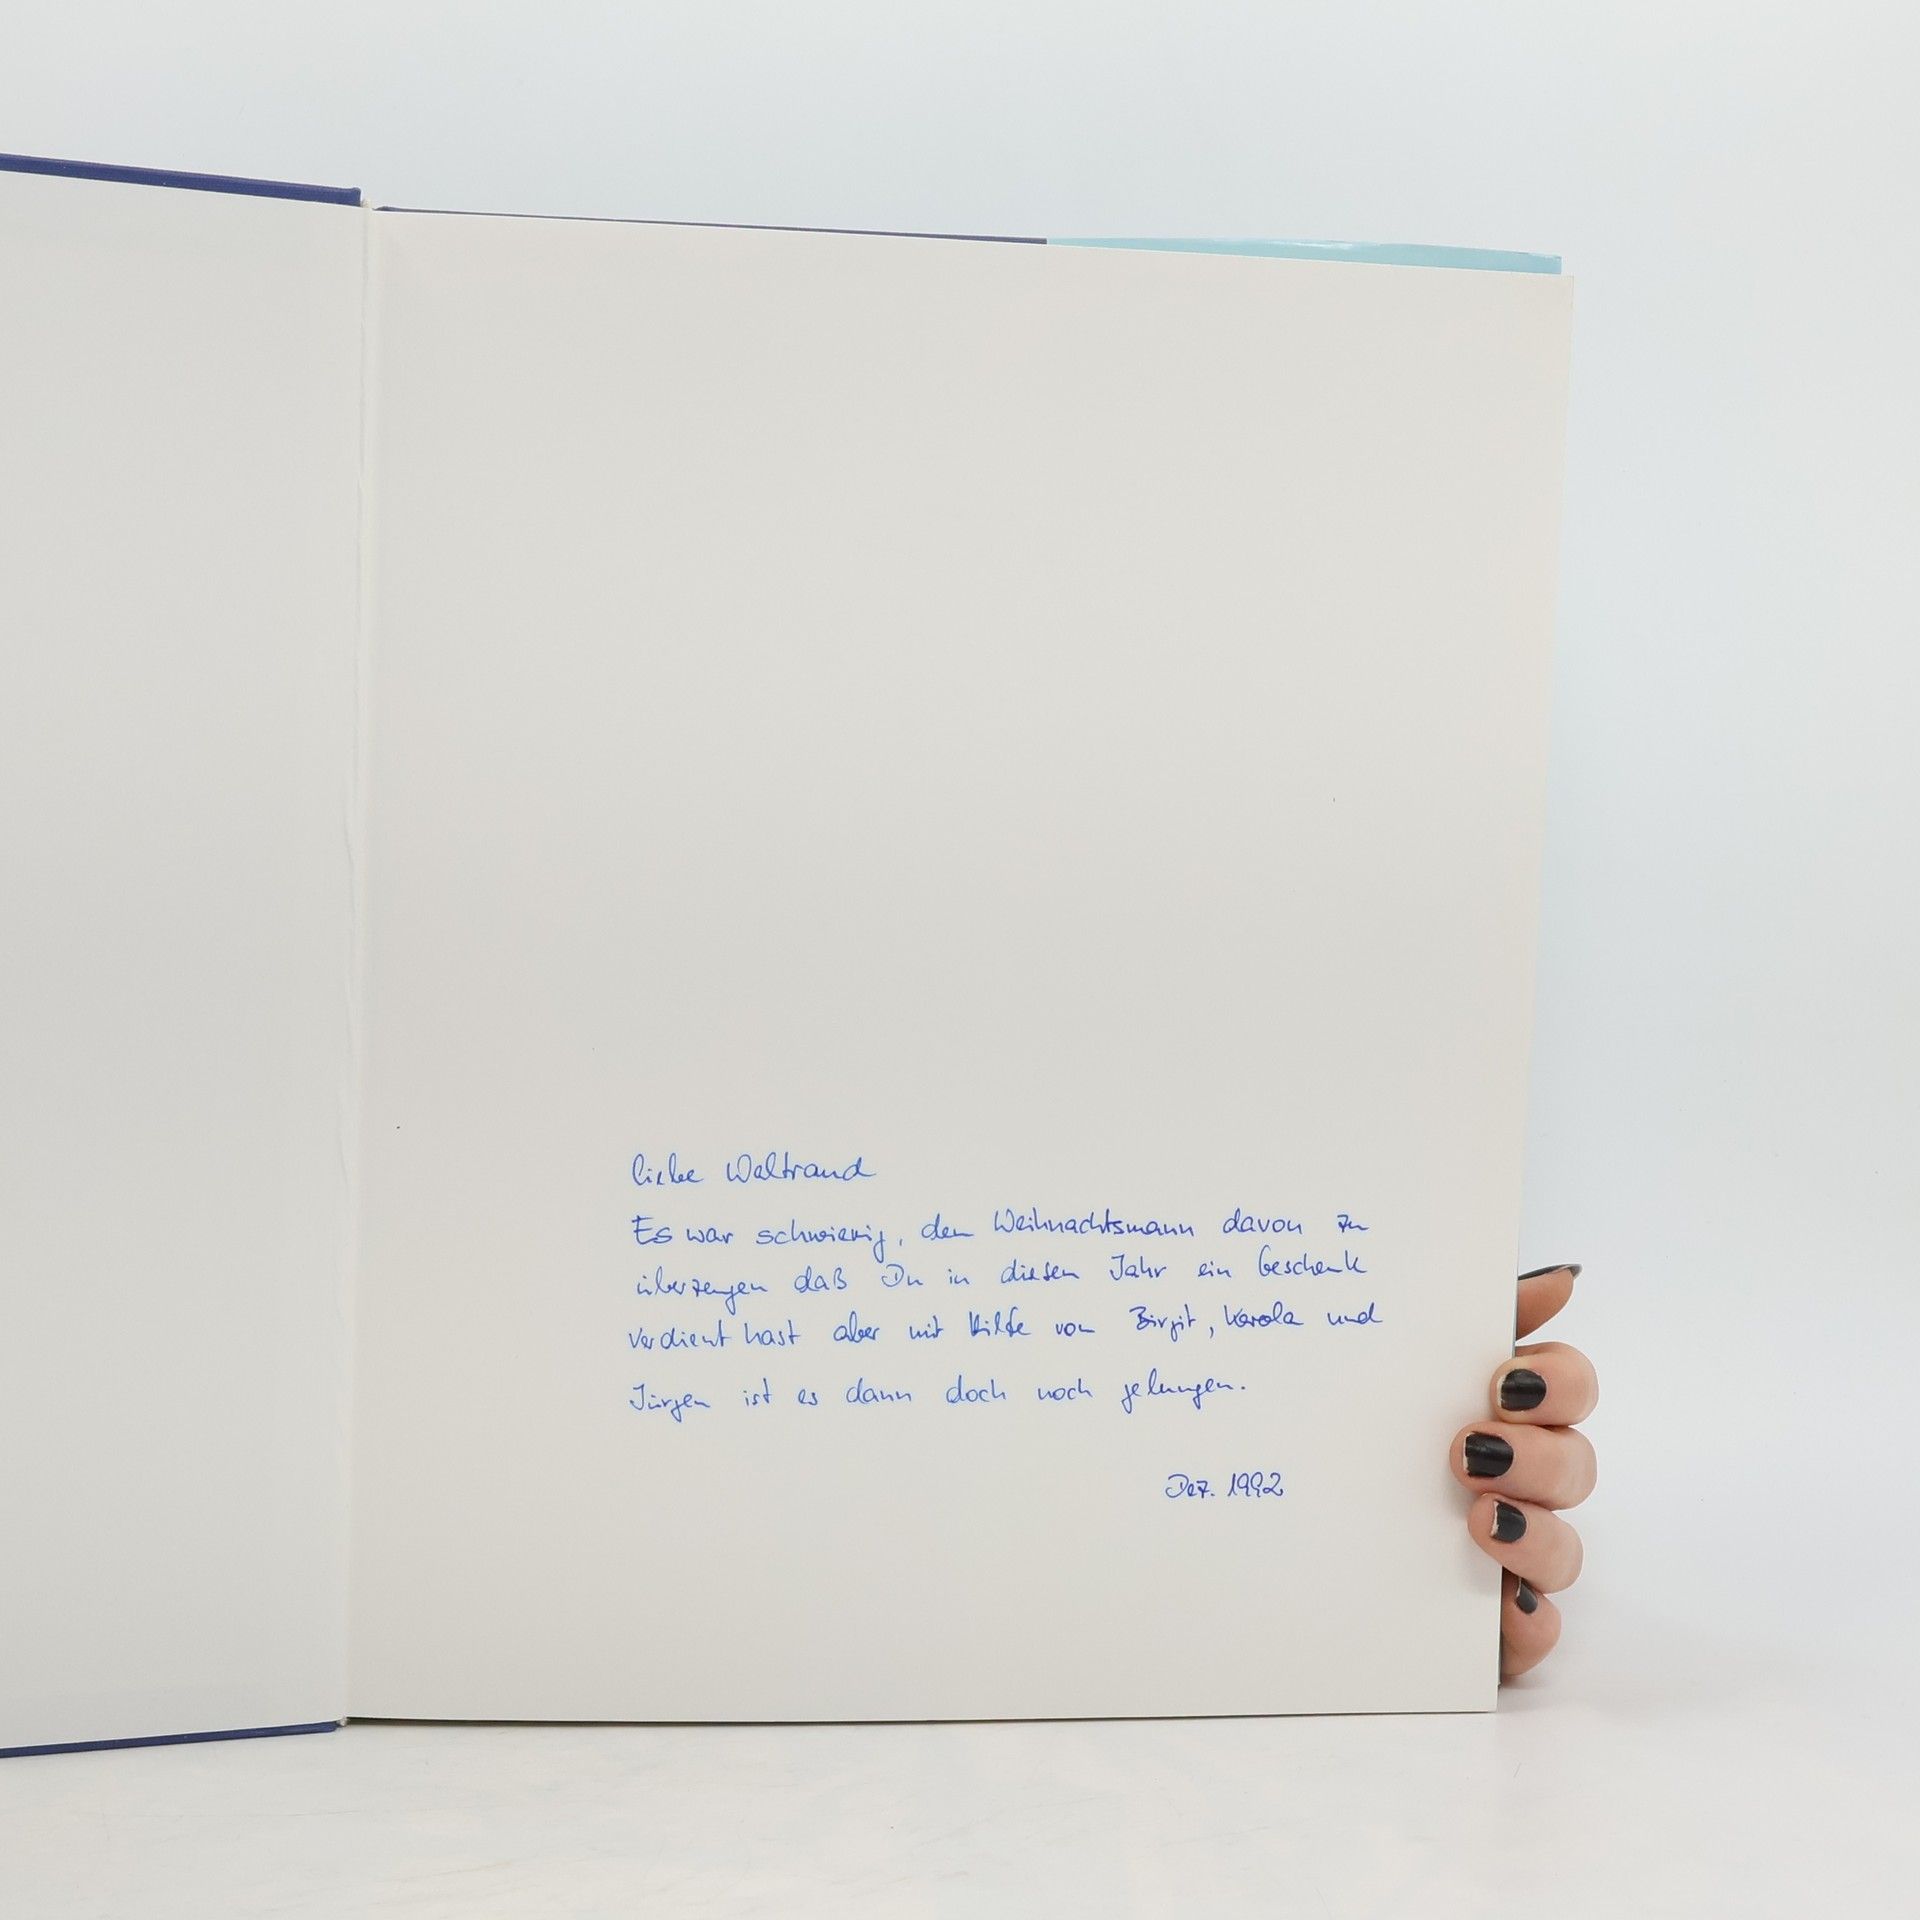 liebe Waltraud
Es war schwierig, den Weihnachtsmann davon zu
überzeugen daß Du in diesem Jahr ein Geschenk
verdient hast aber mit Hilfe von Birgit, Karola und
Jürgen ist es dann doch noch gelungen.
Dez. 1992